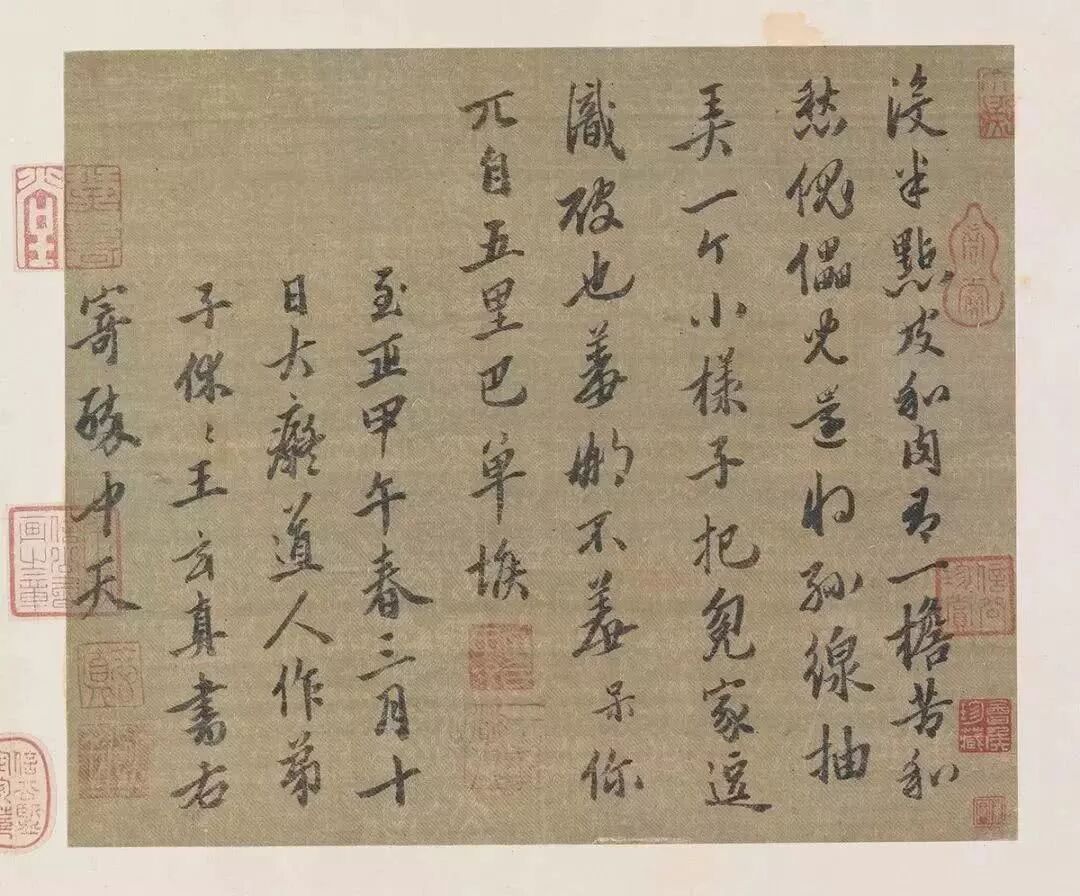 没半點皮和肉有一擔苦和
愁傀儡兒還将絲線抽
弄一个小樣子把冤家逗
識破也羞那不羞呆你
兀自五里巴单堠
至正甲午春三月十
日大癡道人作弟
子休休王玄真書右
寄醉中天